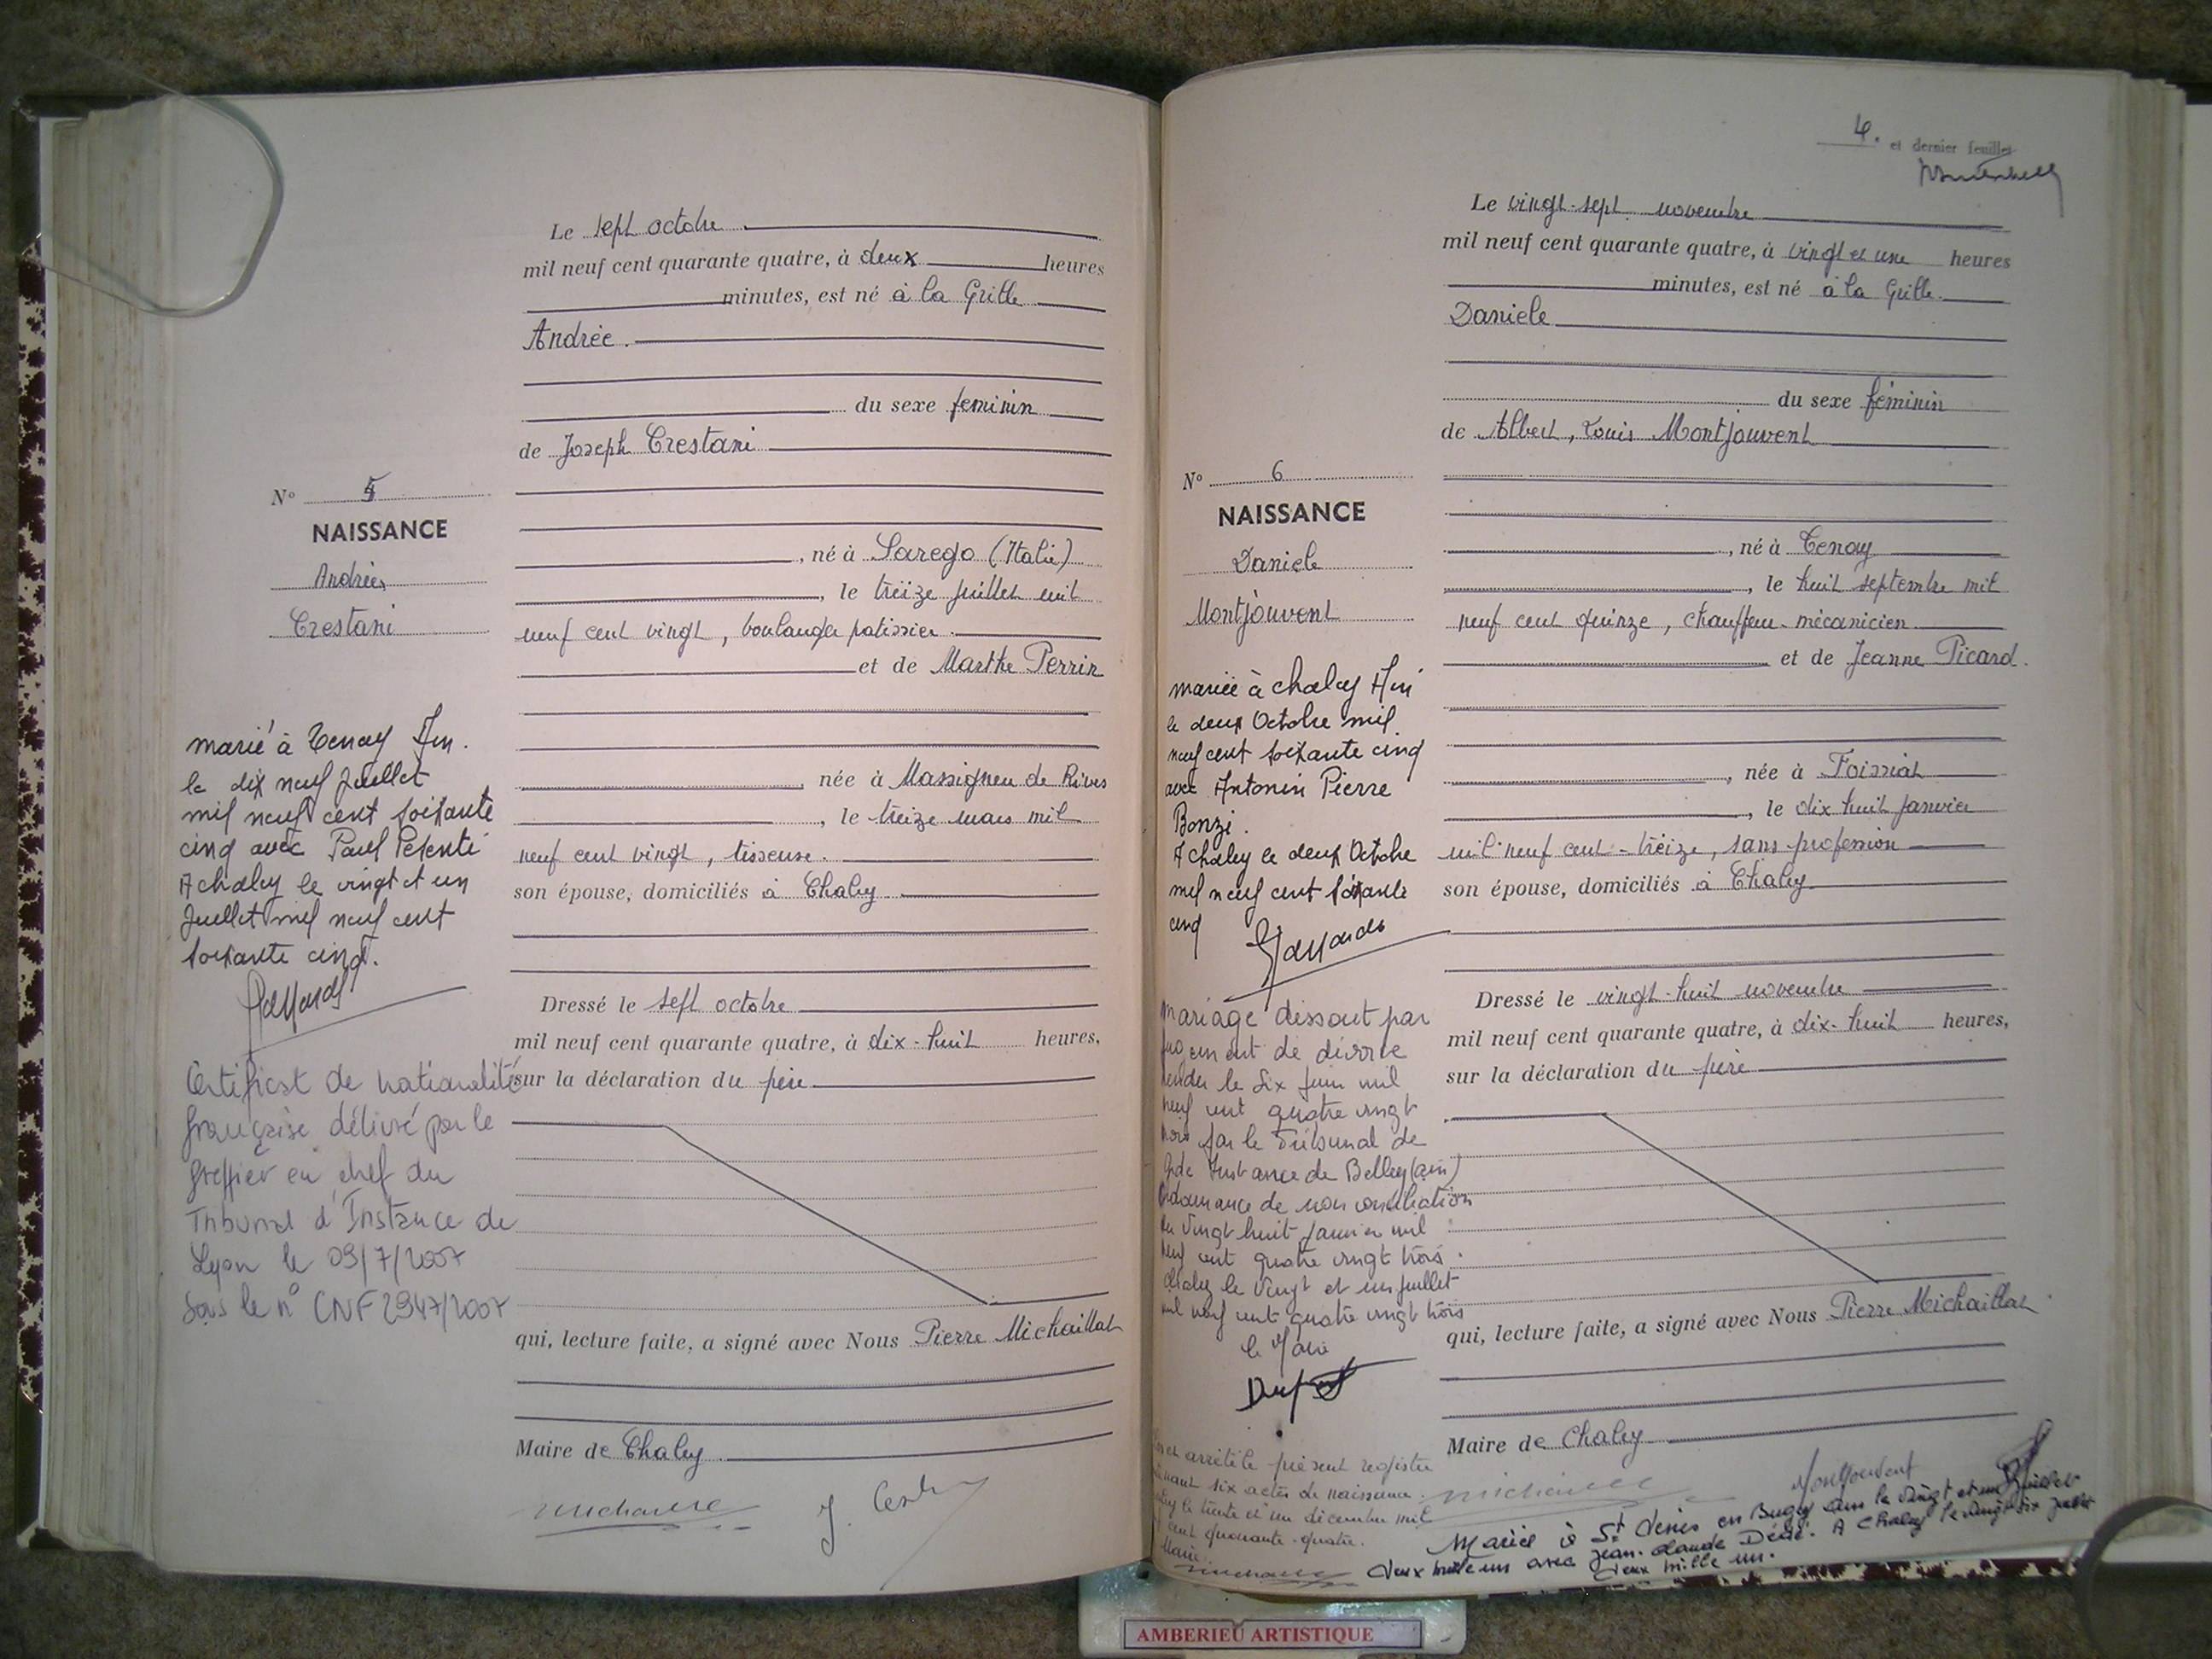 Le sept octobre
mil neuf cent quarante quatre, à deux heures
minutes, est né à la Grille
Andrée.
du sexe feminin
de Joseph Crestani
N° 5
NAISSANCE
Andrée
Crestani
, né à Sarego (Italie)
, le treize juillet mil
neuf cent vingt, boulanger patissier.
et de Marthe Perrin
, née à Massignieu de Rives
, le treize mars mil
neuf cent vingt, tisseuse.
son épouse, domiciliés à Chaley
Dressé le sept octobre
mil neuf cent quarante quatre, à dix-huit heures,
sur la déclaration du père
qui, lecture faite, a signé avec Nous Pierre Michaillat
Maire de Chaley
marié à Tenay Ain.
le dix neuf Juillet
mil neuf cent soixante
cinq avec Paul Pesenti
A chaley le vingt et un
Juillet mil neuf cent
soixante cinq.
Certificat de nationalité
française délivré par le
greffier en chef du
Tribunal d'Instance de
Lyon le 09/7/2007
sous le n° CNF 2947/2007
4. et dernier feuillet
Le vingt-sept novembre
mil neuf cent quarante quatre, à vingt et une heures
minutes, est né à la Grille.
Daniele
du sexe féminin
de Albert, Louis Montjouvent
N° 6
NAISSANCE
Daniele
Montjouvent
, né à Tenay
, le huit septembre mil
neuf cent quinze, chauffeur-mécanicien.
et de Jeanne Picard.
, née à Foissiat
, le dix huit janvier
mil neuf cent-treize, sans profession
son épouse, domiciliés à Chaley
Dressé le vingt-huit novembre
mil neuf cent quarante quatre, à dix-huit heures,
sur la déclaration du père
qui, lecture faite, a signé avec Nous Pierre Michaillat
Maire de Chaley
Montjouvent
mariée à chaley Ain
le deux Octobre mil
neuf cent soixante cinq
avec Antonin Pierre
Bonzi.
A chaley le deux Octobre
mil neuf cent soixante
cinq
mariage dissout par
jugement de divorce
rendu le six juin mil
neuf cent quatre vingt
trois par le Tribunal de
Gde Instance de Belley (ain)
Ordonnance de non conciliation
du vingt huit janvier mil
neuf cent quatre vingt trois.
chaley le vingt et un juillet
mil neuf cent quatre vingt trois
le Maire
arrêté le présent registre
six actes de naissance.
le trente et un décembre mil
cent quarante-quatre.
Maire.
Mariée à St Denis en Bugey ain le vingt et un Juillet
deux mille un avec Jean-claude Dédé. A Chaley le vingt six juillet
deux mille un.
AMBERIEU ARTISTIQUE